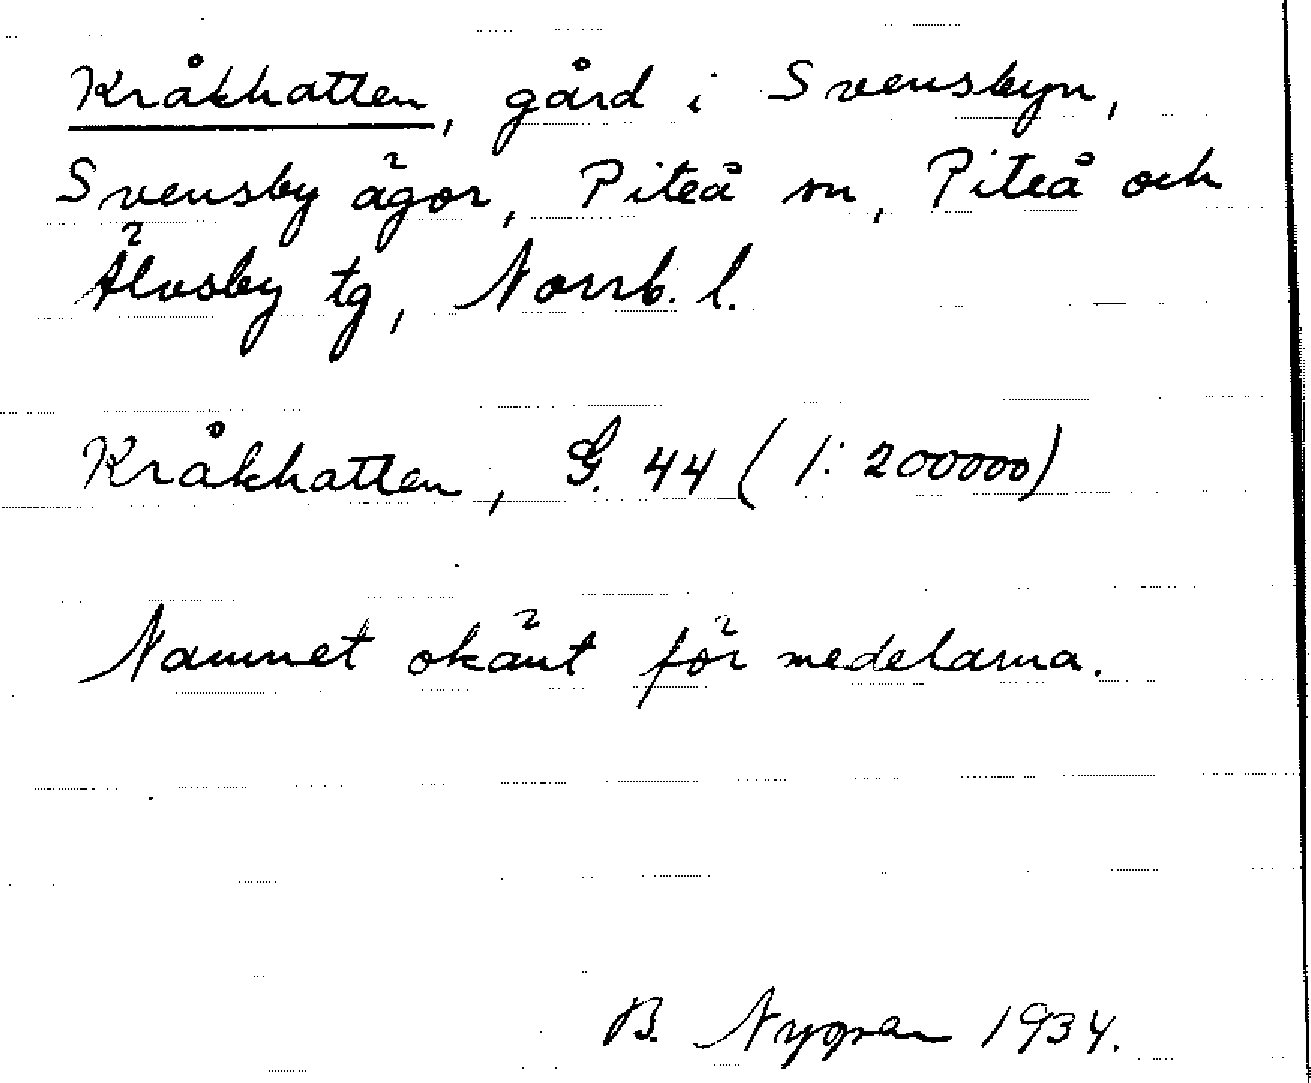 Kråkhatten, gård i Svensbyn,
Svensby ägor, Piteå sn, Piteå och
Älvsby tg, Norrb. l.
Kråkhatten, G. 44 (1:200000)
Namnet okänt för medelarna.
B. Nygren 1934.